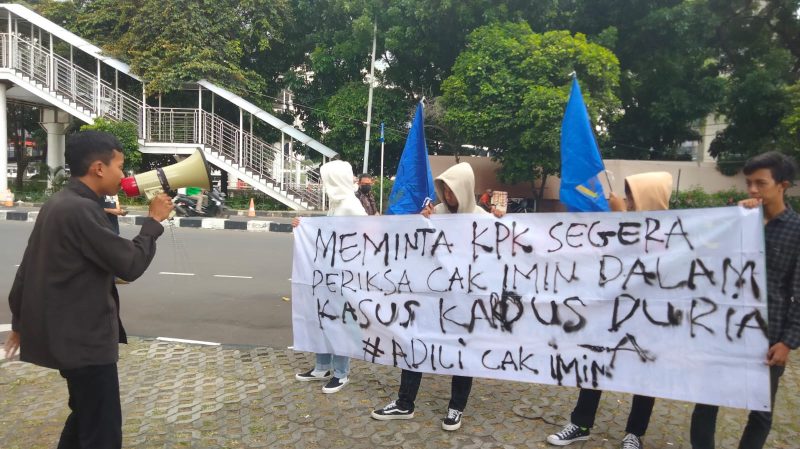 MEMINTA KPK SEGERA
PERIKSA CAK IMIN DALAM
KASUS KARDUS DURIA
#ADILI CAK IMIN